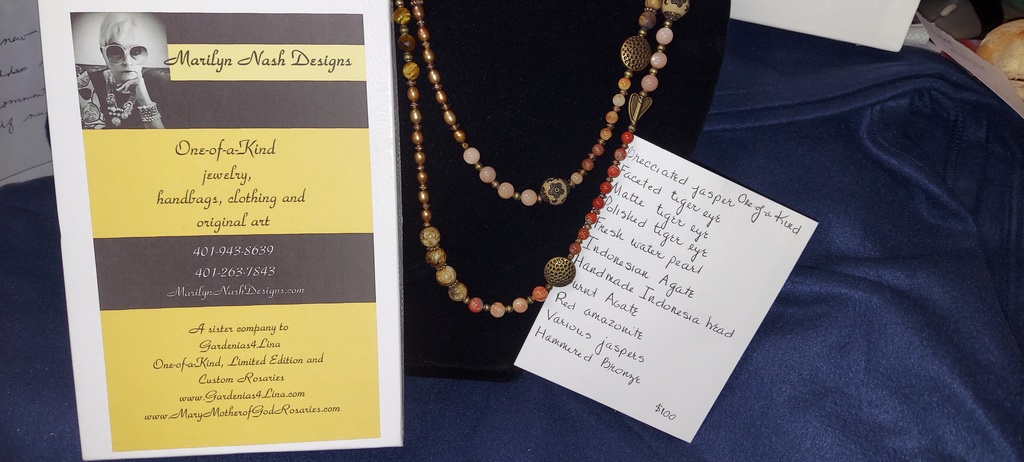 Marilyn Nash Designs
One-of-a-Kind
jewelry,
handbags, clothing and
original art
401-943-8639
401-263-7843
MarilynNashDesigns.com
A sister company to
Gardenias4Lina
One-of-a-Kind, Limited Edition and
Custom Rosaries
www.Gardenias4Lina.com
www.MaryMotherofGodRosaries.com
One of a Kind
Brecciated jasper
Faceted tiger eye
Matte tiger eye
Polished tiger eye
Fresh water pearl
Indonesian Agate
Handmade Indonesia bead
Burnt Agate
Red amazonite
Various jaspers
Hammered Bronze
$100
new